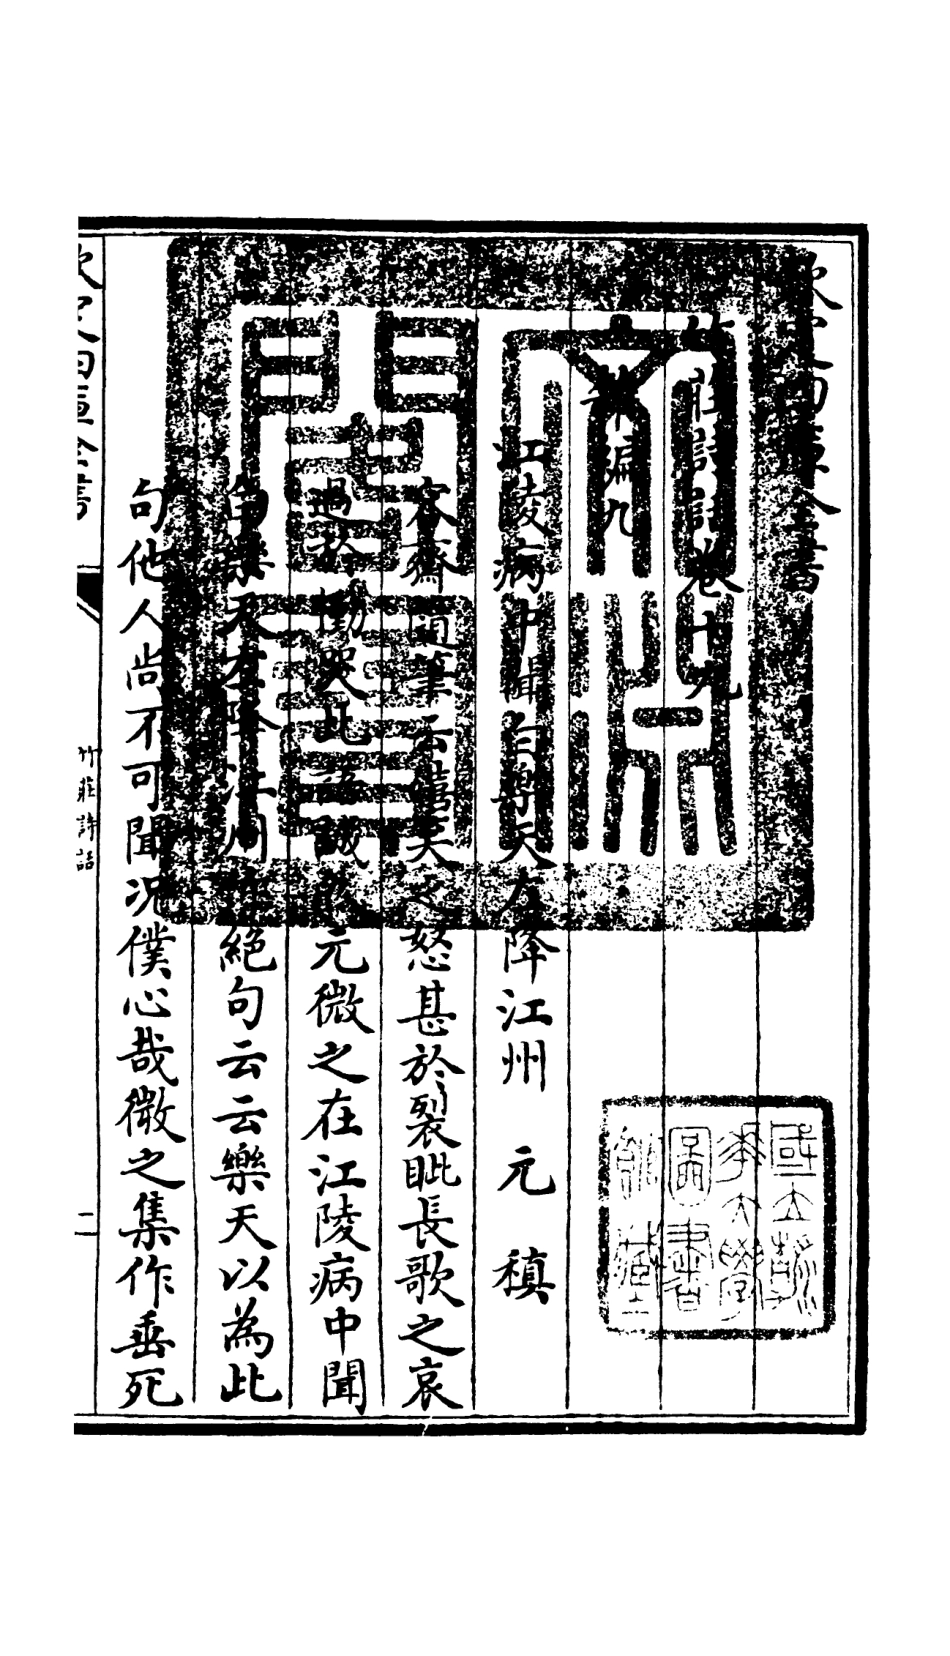 欽定四庫全書
竹莊詩話卷十九
雜編九
江陵病中聞白樂天左降江州 元稹
容齋隨筆云嬉笑之怒甚於裂眦長歌之哀
過於慟哭此語誠然元微之在江陵病中聞
白樂天左降江州作絕句云云樂天以為此
句他人尚不可聞况僕心哉微之集作垂死
欽定四庫全書
竹莊詩話
一
文淵閣寶
國立清華大學圖書館藏